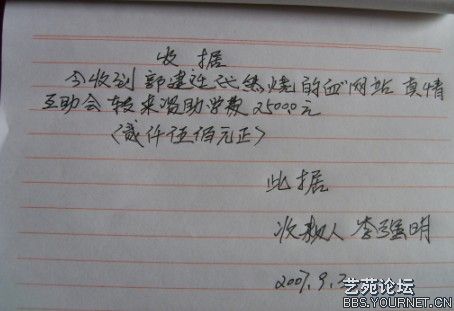 收据
今收到郭建 代"燃烧的血"网站 真情
互助会转来资助学款2500.0元
(贰仟伍佰元正)
此据
收款人 李强明
2007.9.
艺苑论坛
BBS.YOURNET.CN